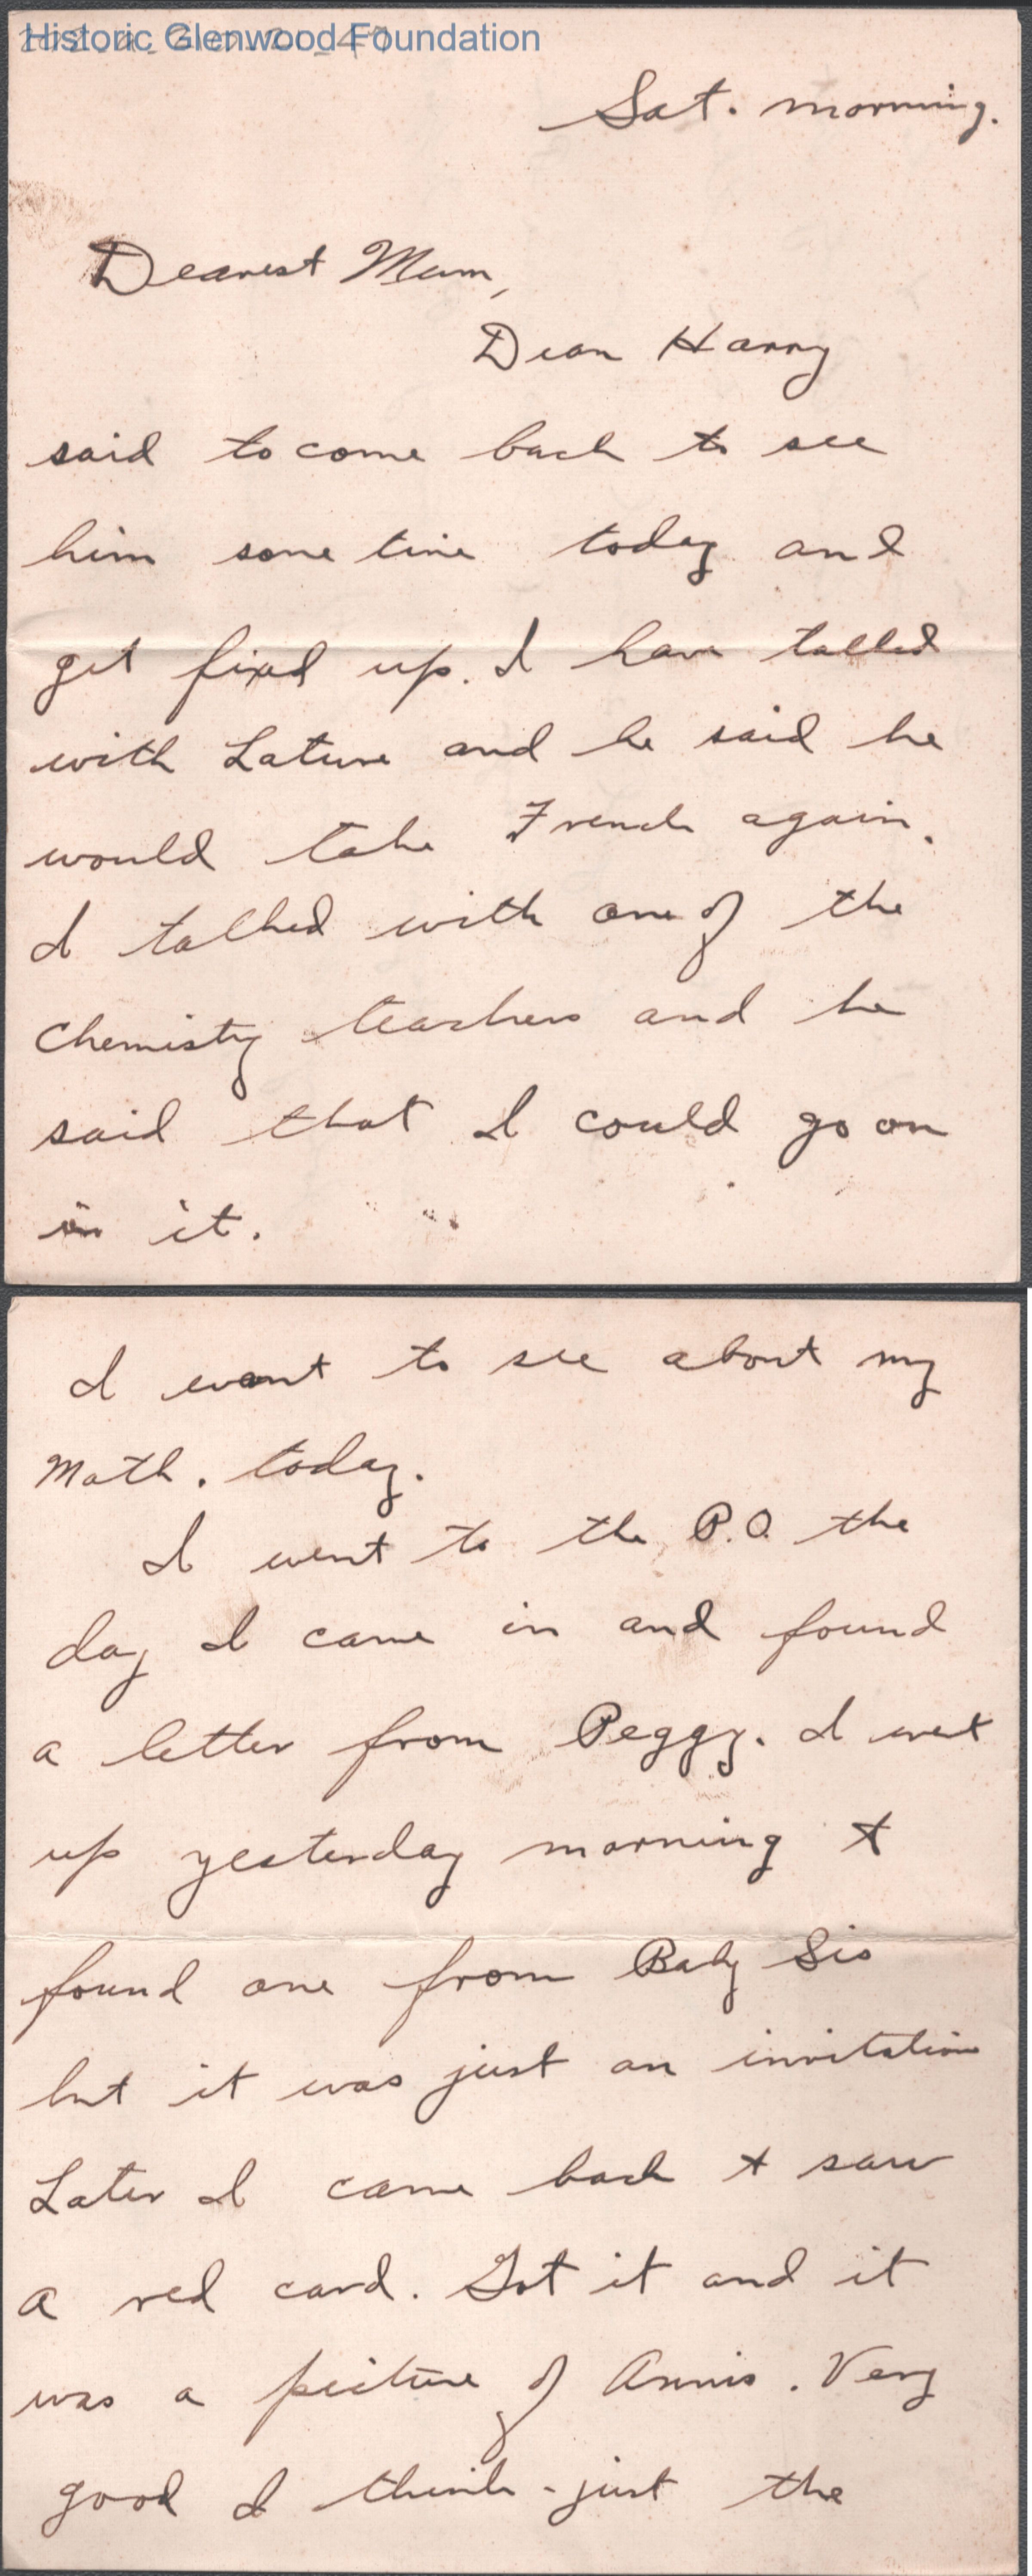 Historic Glenwood Foundation
Sat. morning.
Dearest Mum,
Dean Harry
said to come back to see
him some time today and
get fixed up. I have talked
with Lature and he said he
would take French again.
I talked with one of the
Chemistry teachers and he
said that I could go on
in it.
I want to see about my
Math. today.
I went to the P.O. the
day I came in and found
a letter from Peggy. I went
up yesterday morning &
found one from Baby Sis
but it was just an invitation
Later I came back & saw
a red card. Got it and it
was a picture of Annis. Very
good I think - just the